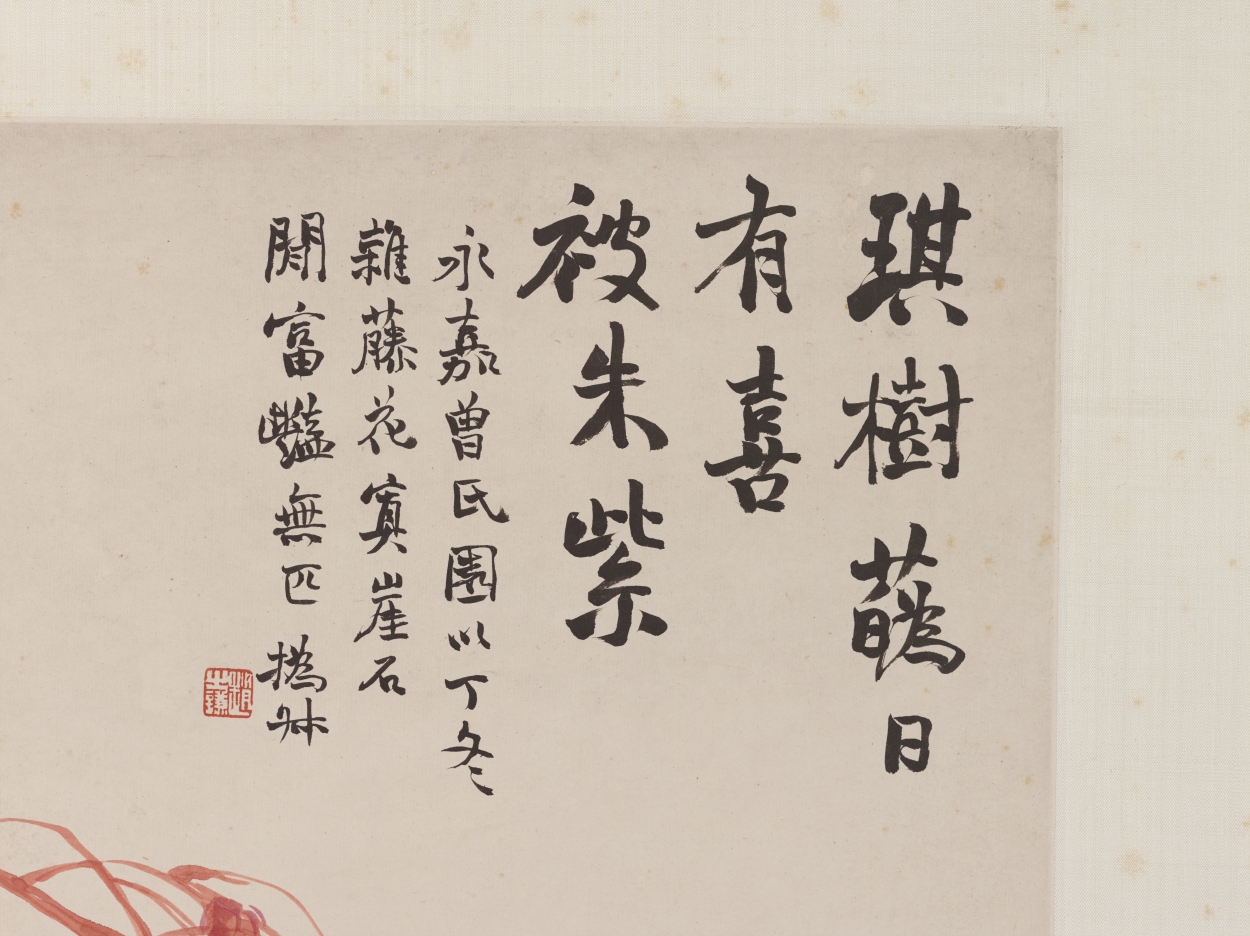 琪樹蘤日
有喜
被朱紫
永嘉曾氏園以丁冬
雜藤花寘崖石
閒富豔無匹撝叔
趙之謙